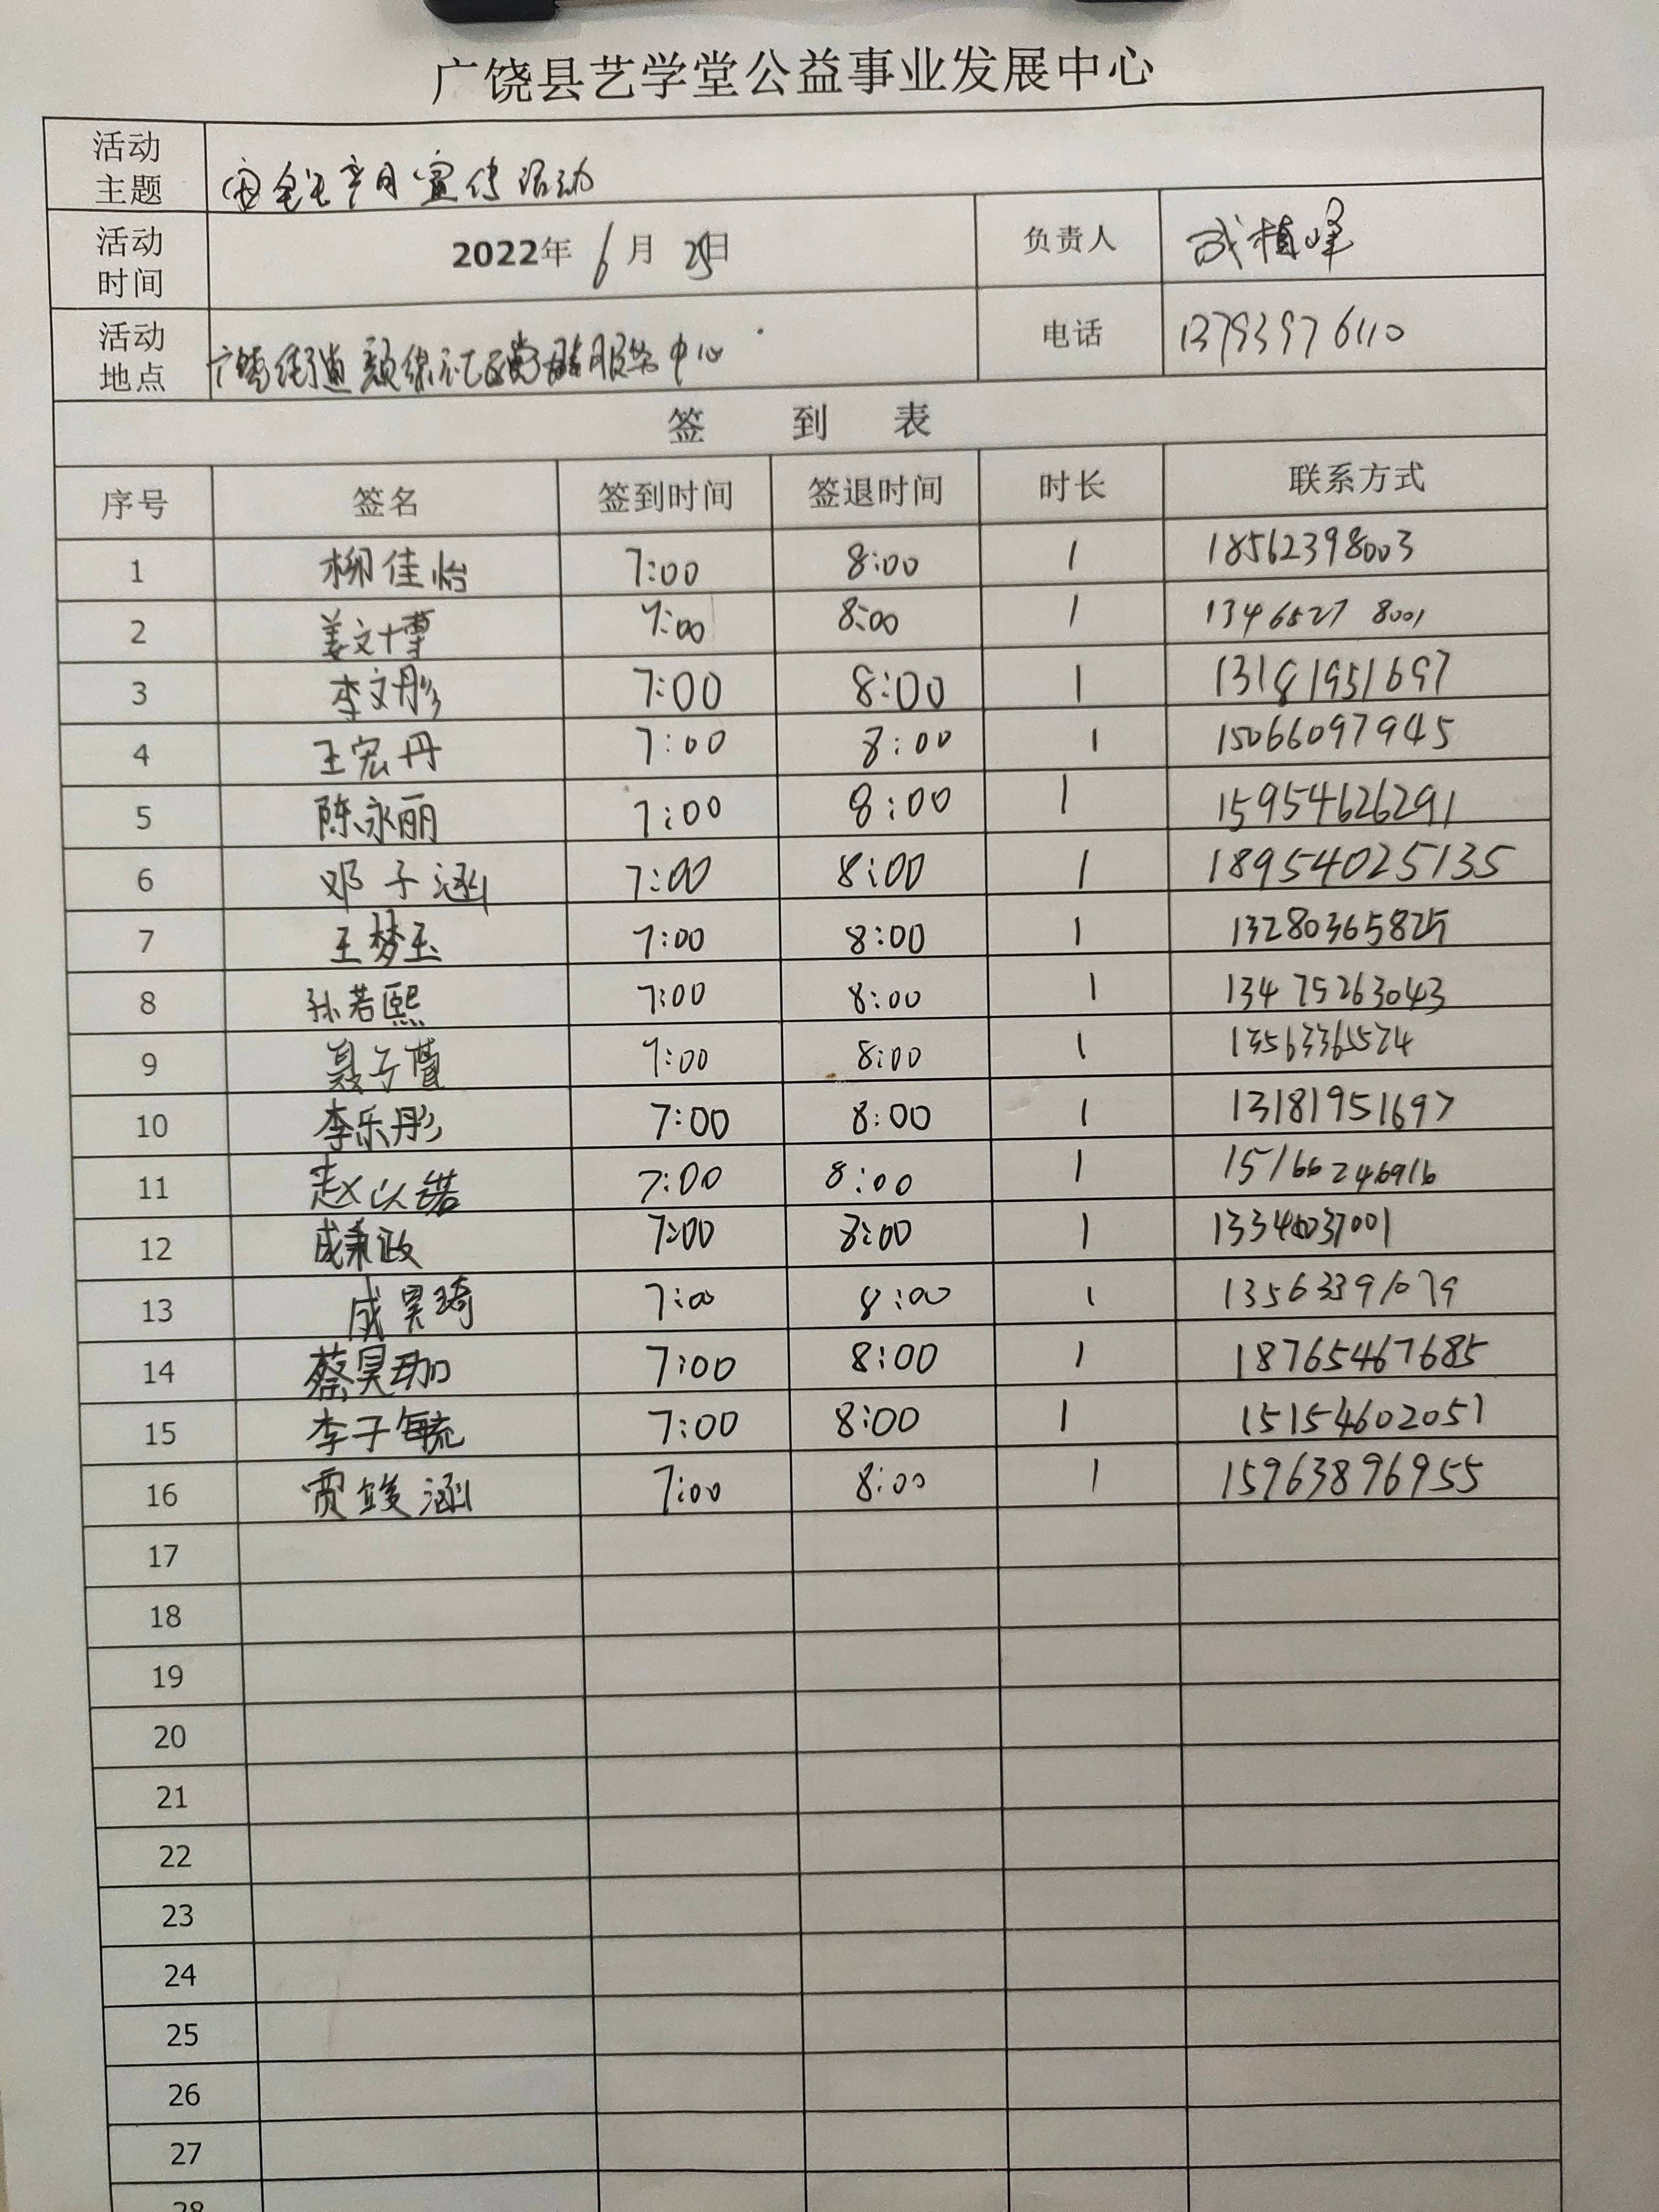 广饶县艺学堂公益事业发展中心
活动主题 安全生产月宣传活动
活动时间 2022年6月25日 负责人 成植峰
活动地点 广饶街道 社区党群服务中心 电话 13793976110
签 到 表
序号 签名 签到时间 签退时间 时长 联系方式
1 柳佳怡 7:00 8:00 1 18562398003
2 姜文博 7:00 8:00 1 13465278001
3 李文彤 7:00 8:00 1 13181951697
4 王宏丹 7:00 8:00 1 15066097945
5 陈永丽 7:00 8:00 1 15954626291
6 邓子涵 7:00 8:00 1 18954025135
7 王梦玉 7:00 8:00 1 13280365825
8 孙若熙 7:00 8:00 1 13475263043
9 聂子萱 7:00 8:00 1 13563365524
10 李乐彤 7:00 8:00 1 13181951697
11 赵以诺 7:00 8:00 1
12 成秉政 7:00 8:00 1
13 成昊琦 7:00 8:00 1 13563391079
14 蔡昊珈 7:00 8:00 1 18765467685
15 李子毓 7:00 8:00 1 15154602051
16 贾竣涵 7:00 8:00 1 15963896955
17
18
19
20
21
22
23
24
25
26
27
28